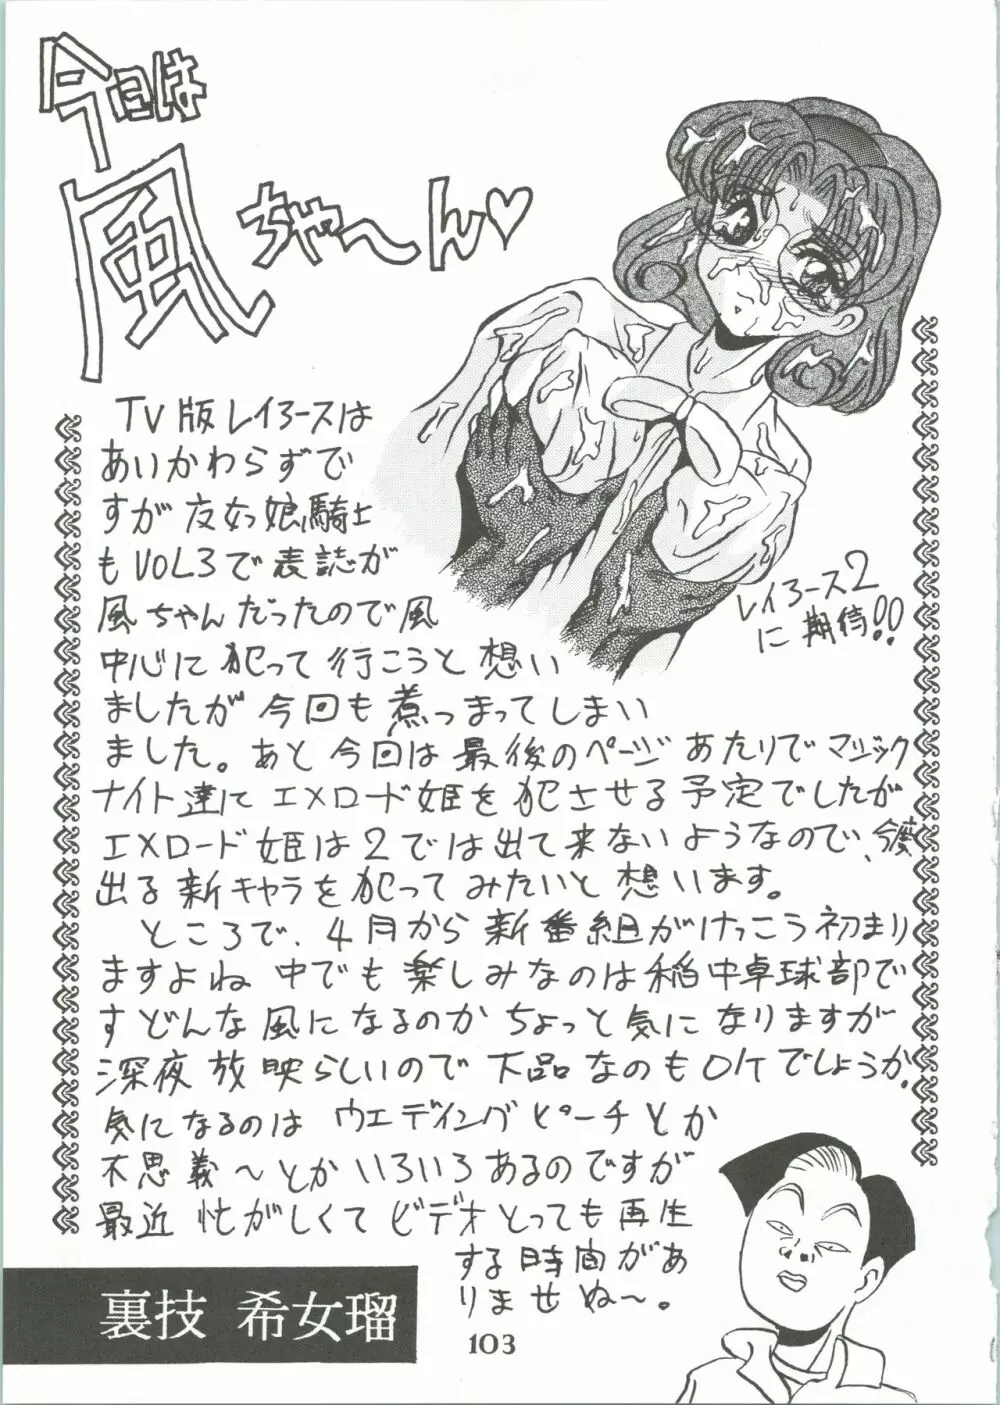 今日は
風ちゃ～ん♡
TV版レイアースは
あいかわらずで
すが友女っ娘騎士
もVOL3で表誌が
風ちゃんだったので風
中心に犯って行こうと想い
ましたが今回も煮つまってしまい
ました。あと今回は最後のページあたりでマジック
ナイト達にエメロード姫を犯させる予定でしたが
エメロード姫は2では出て来ないようなので、今度
出る新キャラを犯ってみたいと想います。
ところで、4月から新番組がけっこう初まり
ますよね中でも楽しみなのは稲中卓球部で
すどんな風になるのかちょっと気になりますが
深夜放映らしいので下品なのもOKでしょうか。
気になるのはウエディングピーチとか
不思義～とかいろいろあるのですが
最近忙がしくてビデオとっても再生
する時間があ
りませぬ～。
レイアース2
に期待!!
裏技 希女瑠
103